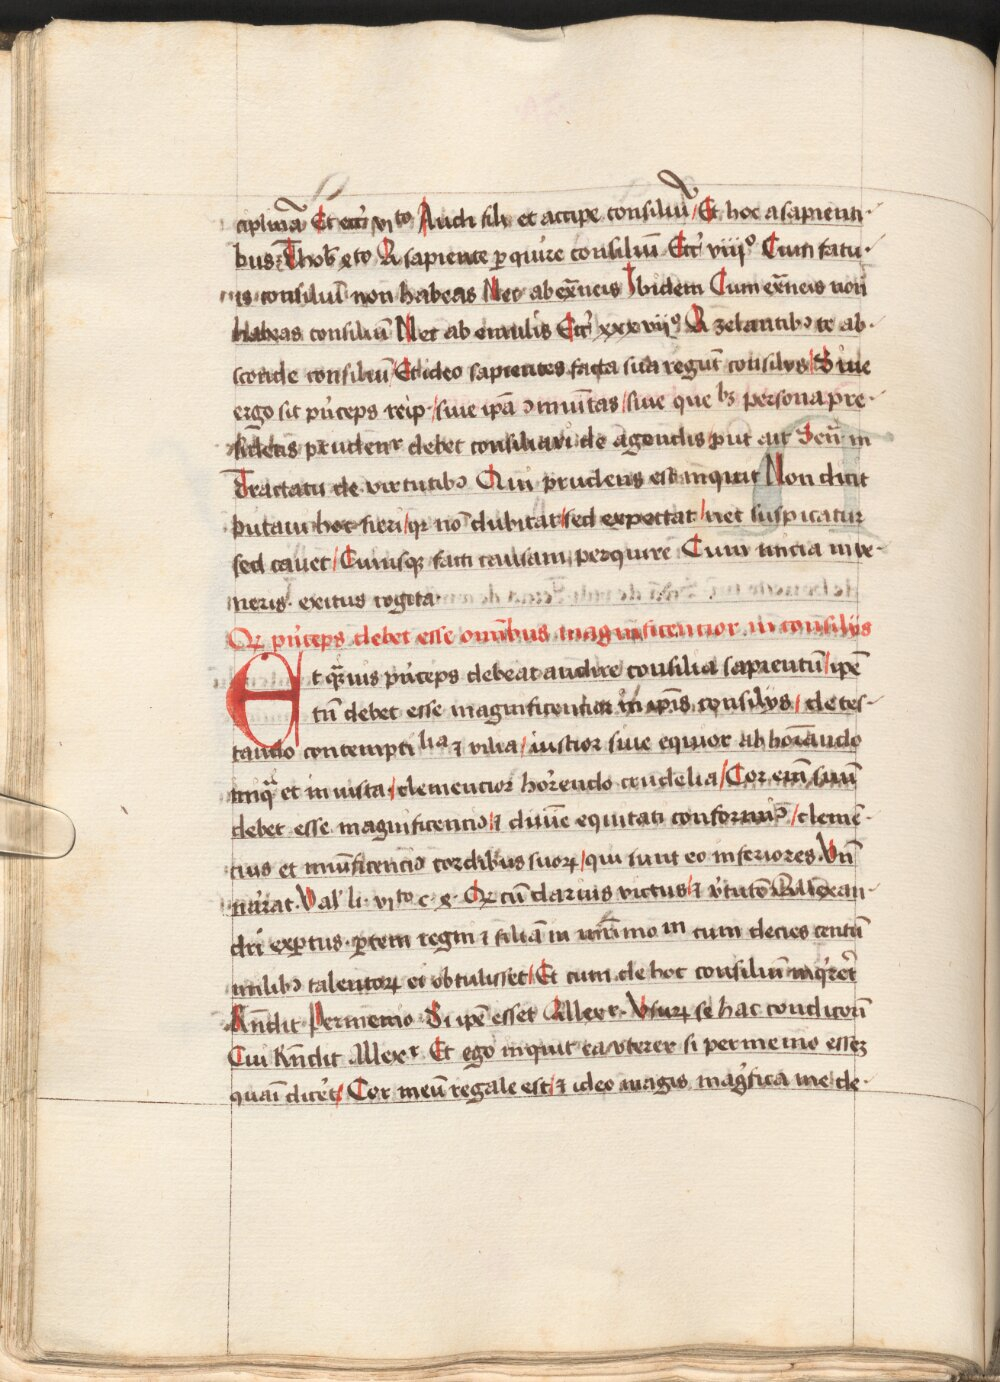 ciplinā Et eccⁱ vjto Audi fili et accipe consiliū / Et hoc a sapienti-
bus Thob̄ xto A sapiente ꝑquire consiliū Eccⁱ viijº Cum fatu-
is consiliū non habeas Nec ab ext̄neis Ibidem Cum ext̄neis non
habeas consiliū Nec ab emulis Eccⁱ xxxvijº A zelantibꝫ te ab-
sconde consiliū / Et ideo sapientes facta sua regūt consilijs / Siue
ergo sit p͛nceps reip̄ / siue ip̄a ꝯmuītas / siue que bꝫ persona pre-
sidētis prudentr debet consiliari de agendis / put ait Seū in
Tractatu de virtutibꝫ Qui prudens est inquit Non dicit
putaui hoc fieri / qr nō dubitat / sed expectat / nec suspicatur
sed cauet / Cuiusqꝫ facti causam perquire Cum inicia inue-
neris exitus cogita
Qꝛ p͛nceps debet esse omībus magnificencior in consilijs
Et q̄uis p͛nceps debeat audire consilia sapientū / ipē
tn̄ debet esse magnificentior in ip̄is consilijs / detes-
tando contemptilia ⁊ vilia / iustior siue equior abhoīando
iniqᵃ et iniusta / clemencior horrendo crudelia / Cor em̄ suū
debet esse magnificencius ⁊ diuīe equitati conformiꝰ / clemē-
cius et muīficenciꝰ cordibus suoꝝ / qui sunt eo inferiores Vn̄
narrat Val̄ li vjto c x Qꝛ cū darius victus / ⁊ v͛tutē Allexan-
dri exꝑtus ꝑtem regni ⁊ filiā in mr̄imoīm cum decies centū
milibꝫ talentoꝝ ei obtulisset / Et cum de hoc consiliū inq͛ret͛
Rn̄dit Permenio Si ipē esset Allexr Vsuꝝ se hac condicoī
Cui Rn̄dit Allexr Et ego inquit ea vterer si permenio essē
quāi dicet͛ / Cor meū regale est / ⁊ ideo magis mag͛fica me de-